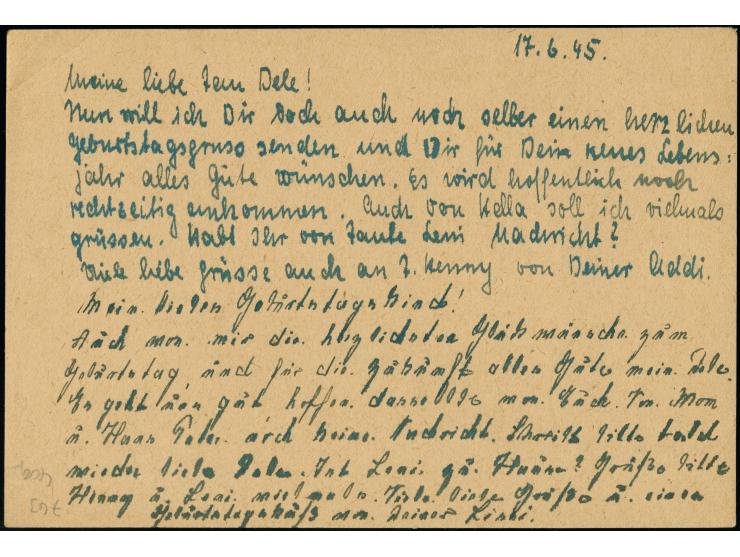 17.6.45.
Meine liebe Tam Dele!
Nun will ich Dir doch auch noch selber einen herzlichen
Geburtstagsgruss senden und Dir für Dein neues Lebens=
jahr alles Gute wünschen. Es wird hoffentlich noch
rechtzeitig ankommen. Auch von Hella soll ich vielmals
grüssen. Habt Ihr von Tante Leni Nachricht?
Viele liebe Grüsse auch an T. Henny von Deiner Addi.
Mein liebes Geburtstagskind!
Auch von mir die herzlichsten Glückwünsche zum
Geburtstag und für die Zukunft alles Gute mein
Es geht uns gut hoffen dasselbe von Euch. Von Mom
u. Hans noch keine Nachricht. Schreib bitte bald
wieder liebe Dele. Ist Leni zu Hause? Grüße bitte
Henny u. Leni vielmals. Viele liebe Grüße u. einen
Geburtstagskuß von Deiner